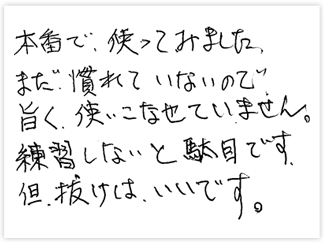 本番で、使ってみました、
まだ、慣れていないので、
旨く、使いこなせていません。
練習しないと駄目です、
但、抜けは、いいです。